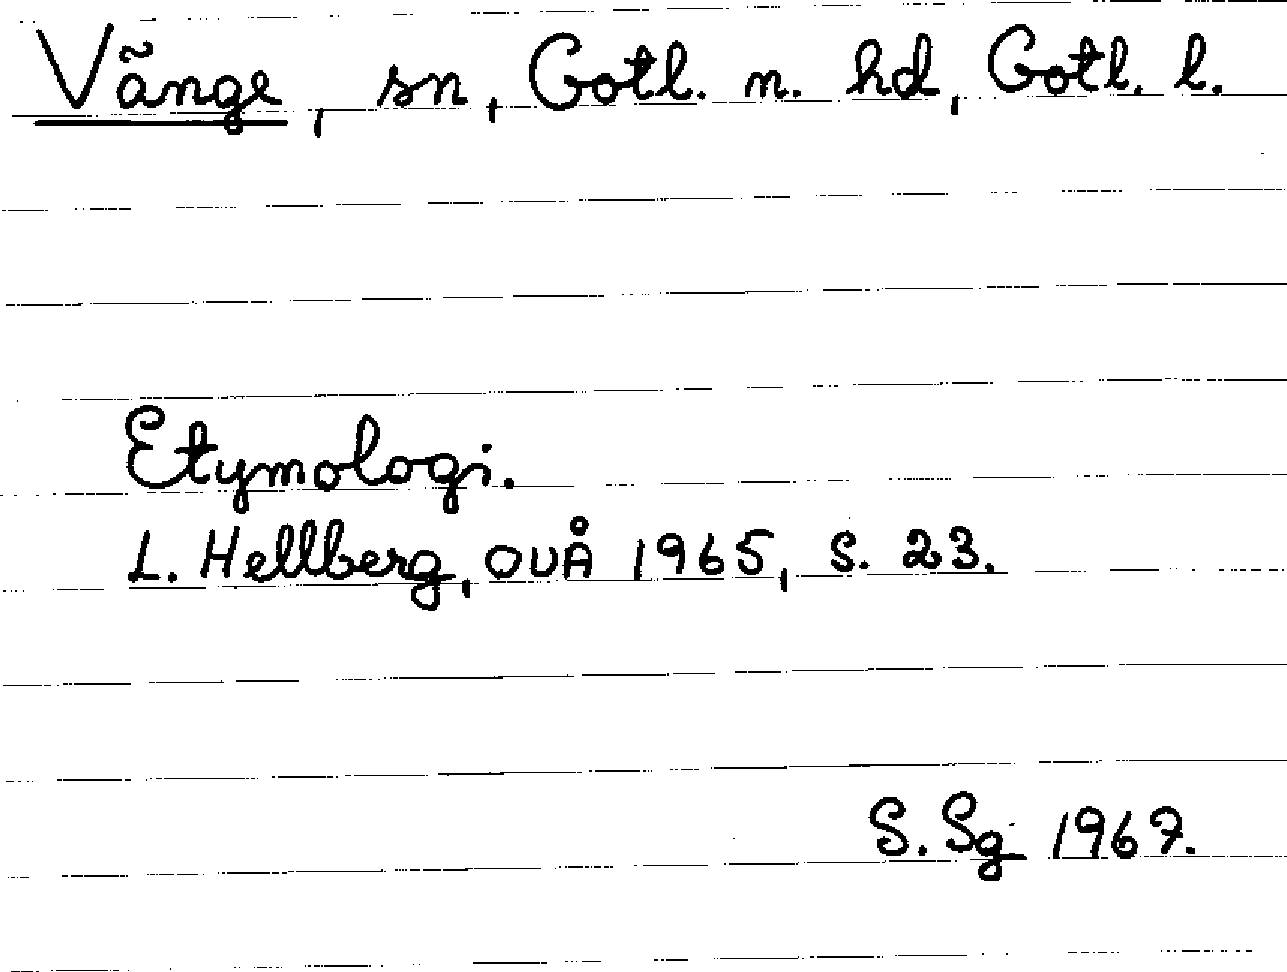 Vänge, sn, Gotl. n. hd, Gotl. l.
Etymologi.
L. Hellberg, OUÅ 1965, s. 23.
S. Sg 1967.